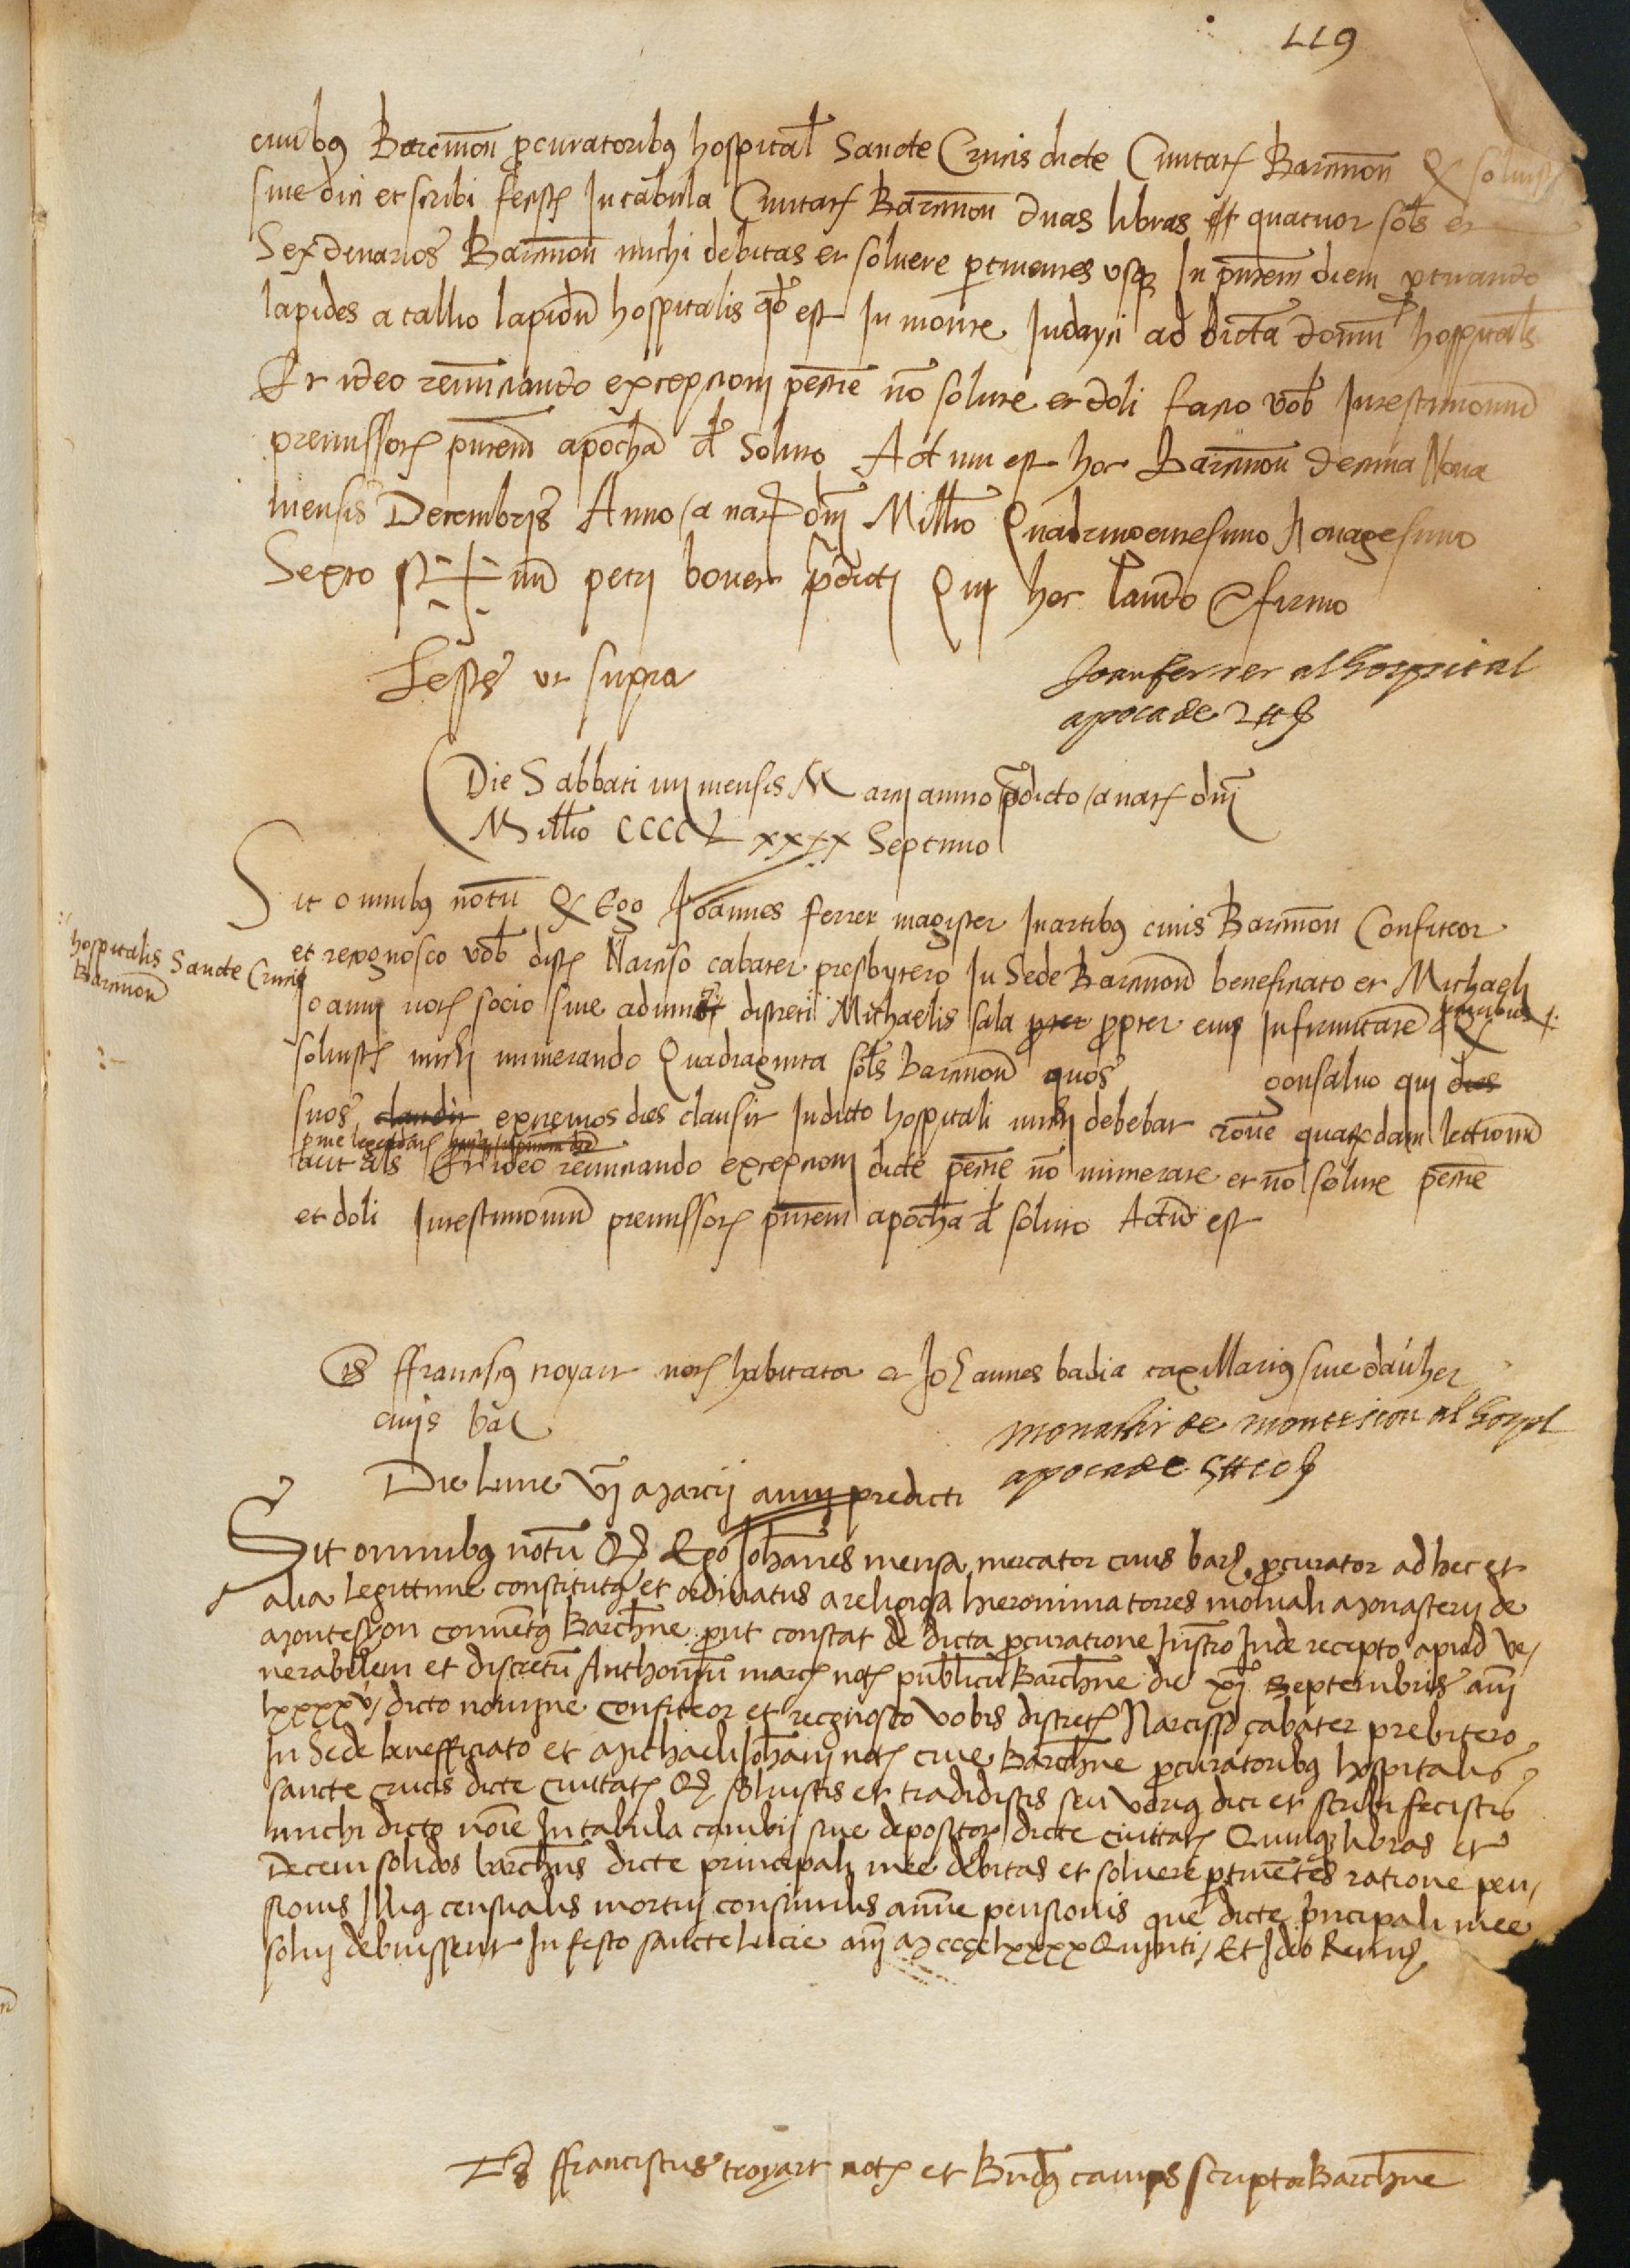 119
civibus Barcinon procuratoribus hospital Sancte Crucis dicte Civitatis Barcinon Q solvistis
sive dici et scribi fecistis In tabula Civitatis Barcinon duas libras quatuor sols et
Sex denarios Barcinon michi debitas et solvere pertinentes usque In presentem diem portando
lapides a tallio lapidum hospitalis quod est In monte Judayci ad dictam domum hospitalis
Et ideo renunciando excepcioni pecunie non solute et doli facio vobis In testimonium
premissorum presentem apocham de soluto Actum est hoc Barcinon decima Nona
mensis Decembris Anno a nat dni Millo Quadringentesimo Nonagesimo
Sexto Sig+num petri bover predicti Qui hec laudo et firmo
Testes ut supra
Joan ferrer al hospital
apoca de 2 ll
Die Sabbati iiij mensis Marcij anno predicto a nat dni
Millo CCCCLxxxx Septimo
Sit omnibus notum Q Ego Joannes ferrer magister In artibus civis Barcinon Confiteor
et recognosco vobis discretis Narciso cabater presbytero In Sede Barcinon beneficiato et Michaeli
hospitalis Sancte Crucis
Barcinon
Joanni not socio sive adiuncto discreti Michaelis sala propter eius Infirmitatem Q
solvistis michi numerando Quadraginta sols Barcinon quos gonsalvo qui dies
suos claudit extremos dies clausit In dicto hospitali michi debebat racione quarumdam lectionum
aut als Et ideo renunciando excepcioni dicte pecunie non numerate et non solute pecunie
et doli In testimonium premissorum presentem apocham de soluto Actum est
Ts ffranciscus troyart not habitator et Johannes badia taxillarius sive dauher
civis bar
monestir de montesion al hospl
apoca de 5 ll 10
Die lune vj marcij anni predicti
Sit omnibus notum Q Ego Johannes mensa mercator civis bar procurator ad hec et
alia legittime constitutus et ordinatus a religiosa hieronima torres moniali monasterij de
montession conventus Barchne prout constat de dicta procuratione Instro Inde recepto apud ve
nerabilem et discretum Anthonium march not publicum Barchne die xj Septembris anni
lxxxxvj dicto nomine Confiteor et recognosco vobis discretis Narcisso çabater prebitero
In Sede benefficiato et michaeli Johani not cive Barchne procuratoribus hospitalis
sancte crucis dicte civitatis Q solvistis et tradidistis seu verius dici et scribi fecistis
michi dicto noie In tabula cambij sive depositorum dicte civitatis Quinque libras et
Decem solidos barchns dicte principali mee debitas et solvere pertinentes ratione pen
sionis Illius censualis mortuj consimilis annue pensionis que dicte principali mee
solvj debuissent In festo sancte lucie anni m cccclxxxx Quinti Et Ideo Renun
Ts ffranciscus troyart not et Bndus camps scriptor Barchne